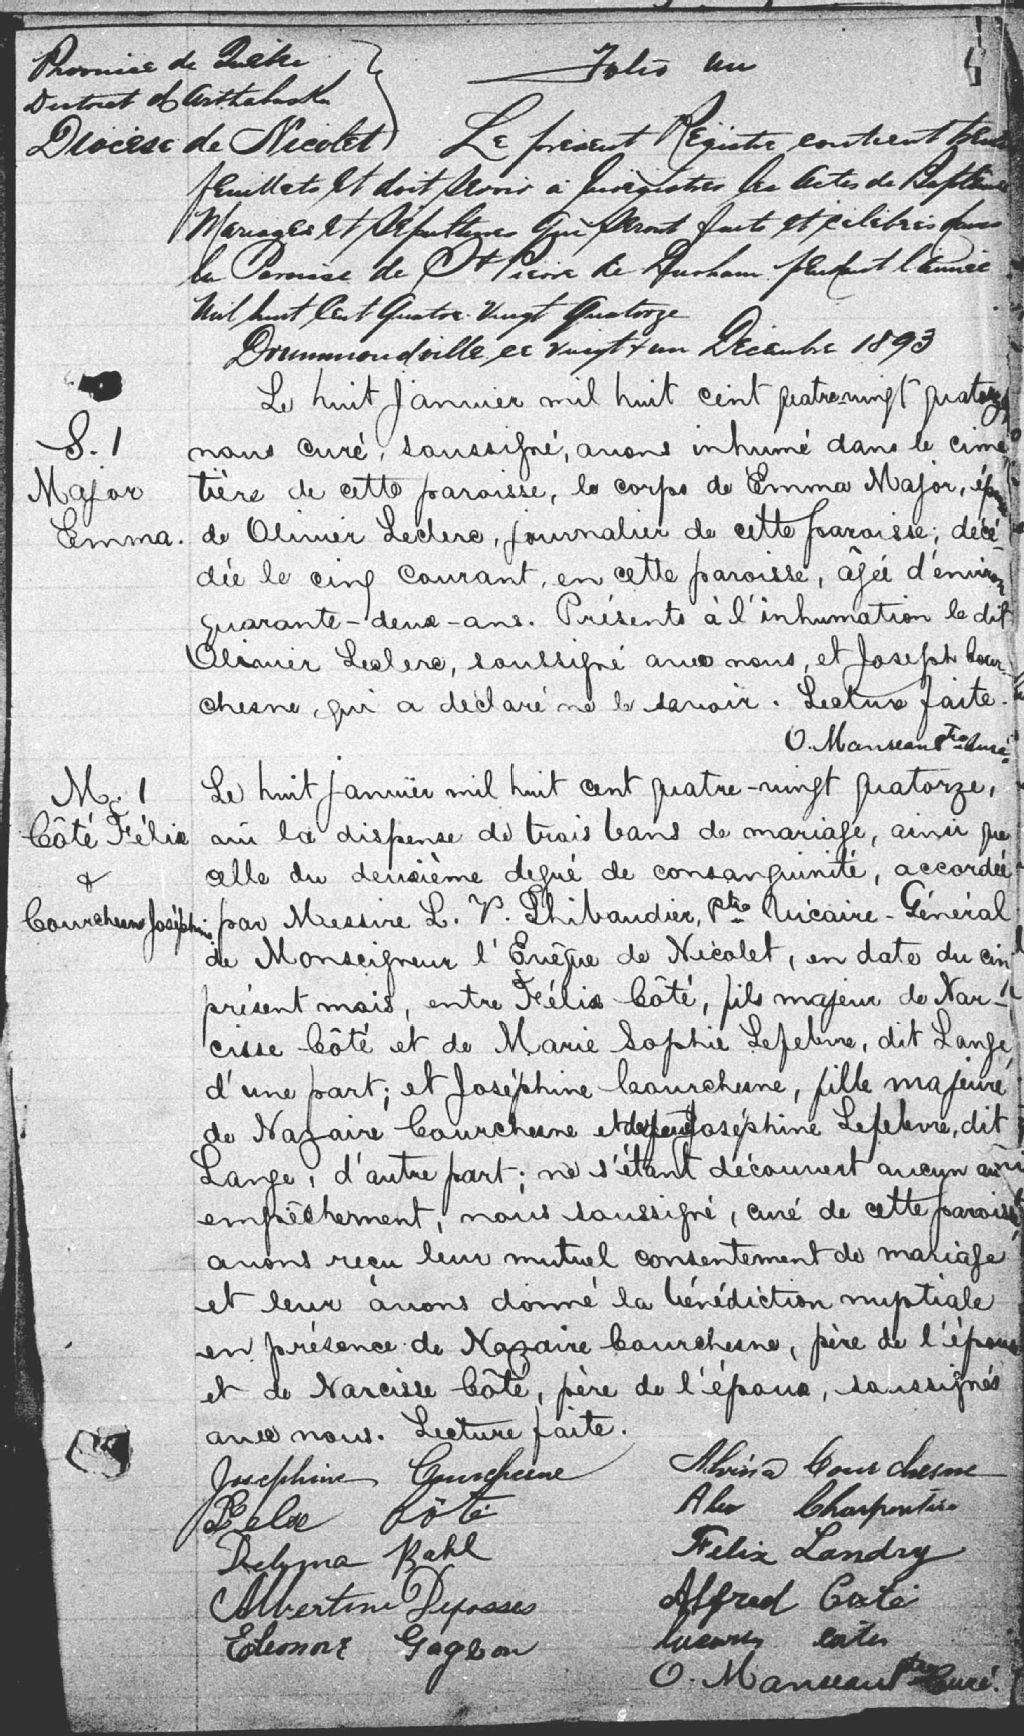 Province de Québec
Folio un
District d'Arthabaska
Diocèse de Nicolet
Le présent Régistre contient
feuillets et doit servir à Enrégistrer les Actes de Baptême
Mariages et Sépultures qui seront faits et célébrés dans
la Paroisse de St Pierre de Durham pendant l'année
Mil huit Cent Quatre Vingt Quatorze
Drummondville, ce vingt & un Décembre 1893
Le huit Janvier mil huit cent quatre-vingt quatorze
S. 1
Major
Emma.
nous curé, soussigné, avons inhumé dans le cime
tière de cette paroisse, le corps de Emma Major, épouse
de Olivier Leclerc, journalier de cette paroisse; décé
dée le cinq courant, en cette paroisse, âgée d'environ
quarante-deux-ans. Présents à l'inhumation le dit
Olivier Leclerc, soussigné avec nous, et Joseph Cour-
chesne, qui a déclaré ne le savoir. Lecture faite.
O. Manseau Ptre Curé.
M. 1
Côté Félix
&
Courchesne Joséphine
Le huit Janvier mil huit cent quatre-vingt quatorze,
vu la dispense de trois bans de mariage, ainsi que
celle du deuxième degré de consanguinité, accordée
par Messire L. V. Thibaudier, Ptre Vicaire-Général
de Monseigneur l'Evêque de Nicolet, en date du cinq
présent mois, entre Félix Côté, fils majeur de Nar-
cisse Côté et de Marie Sophie Lefebvre, dit Lange
d'une part; et Joséphine Courchesne, fille majeure
de Nazaire Courchesne et de feue Joséphine Lefebvre, dit
Lange, d'autre part; ne s'étant découvert aucun
empêchement, nous soussigné, curé de cette paroisse
avons reçu leur mutuel consentement de mariage
et leur avons donné la bénédiction nuptiale
en présence de Nazaire Courchesne, père de l'épouse
et de Narcisse Côté, père de l'époux, soussignés
avec nous. Lecture faite.
Josephine Courchesne
Alvina Courchesne
Felix Côté
Alex Charpentier
Delyma Bahl
Felix Landry
Albertine Desfosses
Alfred Coté
Eleonore Gagnon
O. Manseau Ptre Curé.